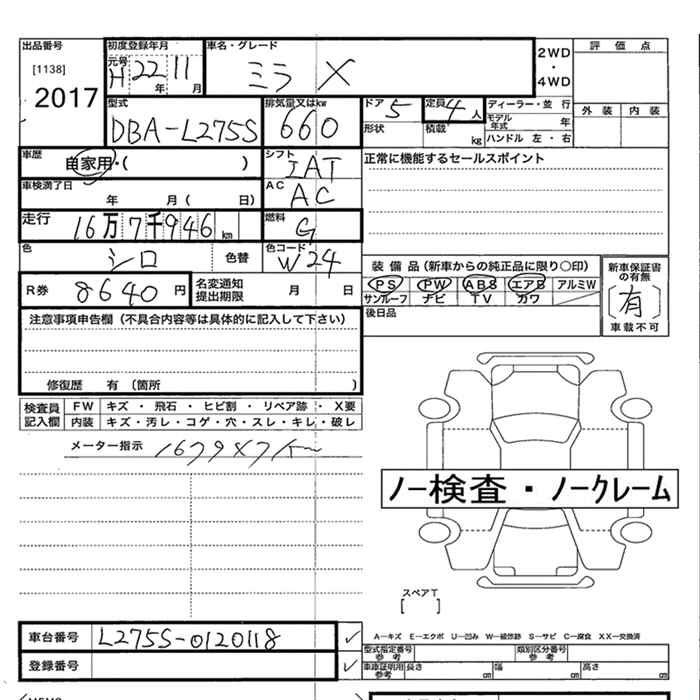 出品番号 初度登録年月 車名・グレード 2WD・4WD 評価点
[1138] 元号 H 22年 11月 ミラ X
2017 外装 内装
型式 排気量又はkw ドア 5 定員 4人 ディーラー・並行
DBA-L275S 660 形状 積載 kg モデル年式 年
ハンドル 左・右
車歴 自家用・( ) シフト IAT 正常に機能するセールスポイント
車検満了日 年 月( 日) AC AC
走行 16万7千946km 燃料 G
色 シロ 色替 色コード W24
装備品(新車からの純正品に限り○印) 新車保証書の有無
R券 8640円 名変通知提出期限 月 日 PS PW ABS エアB アルミW [有]
サンルーフ ナビ TV カワ 車載不可
注意事項申告欄(不具合内容等は具体的に記入して下さい) 後日品
修復歴 有(箇所 )
検査員記入欄 FW キズ・飛石・ヒビ割・リペア跡・X要
内装 キズ・汚レ・コゲ・穴・スレ・キレ・破レ
メーター指示
ノー検査・ノークレーム
スペアT
[ ]
車台番号 L275S-0120118 ✓ A—キズ E—エクボ U—凹み W—補修跡 S—サビ C—腐食 XX—交換済
型式指定番号 参考 類別区分番号 参考
登録番号 ✓ 車庫証明用 参考 長さ cm 幅 cm 高さ cm